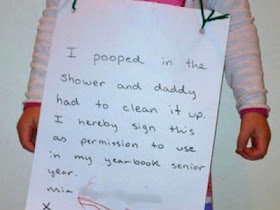 I pooped in the
shower and daddy
had to clean it up.
I hereby sign this
as permission to use
in my yearbook senior
year.
Mia
X